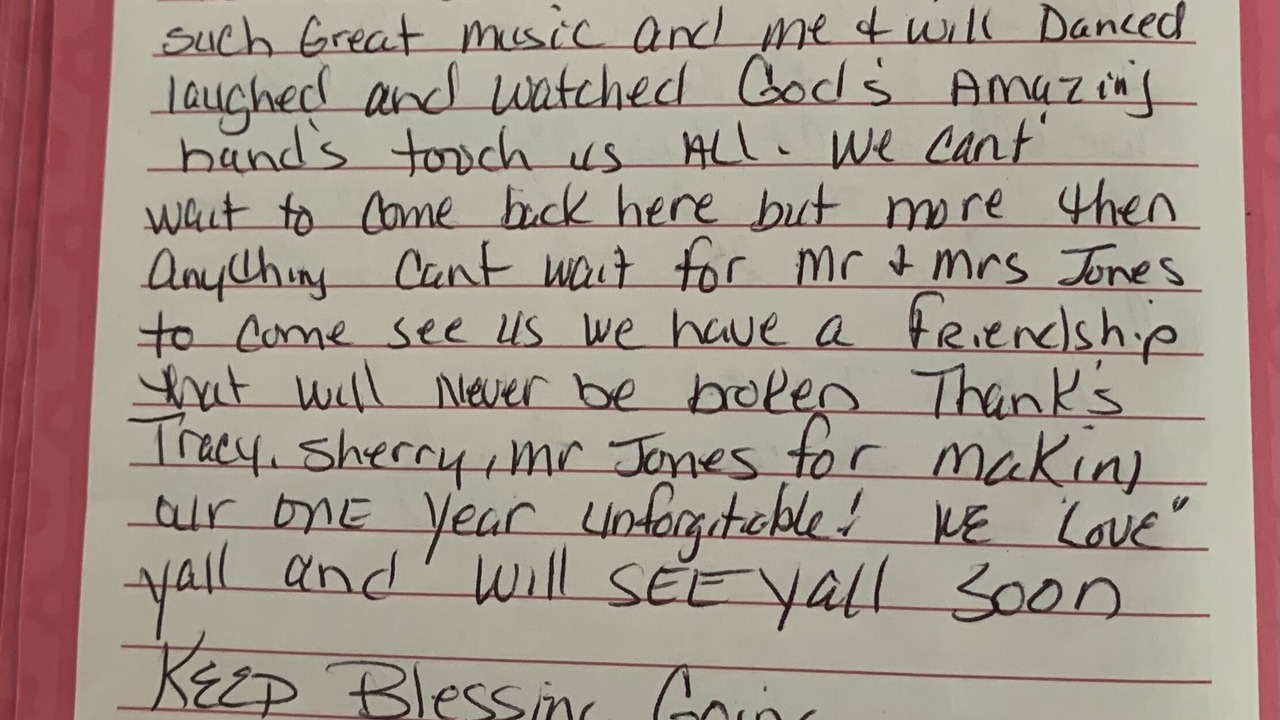 such Great music and me & will Danced
laughed and watched God's Amazing
hand's tooch us ALL. We cant'
wait to come back here but more then
Anything Cant wait for mr & mrs Jones
to come see us we have a friendship
that will Never be broken Thank's
Tracy, Sherry, mr Jones for making
our one year unforgitable! WE "Love"
yall and will SEE yall soon
KEEP Blessing Going